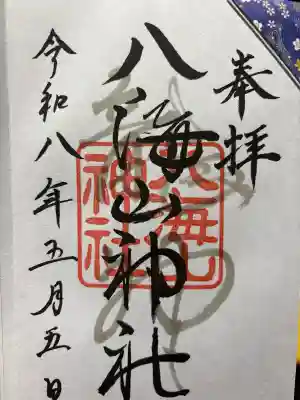 奉拝
八海山神社
八海山
神社
令和八年五月五日